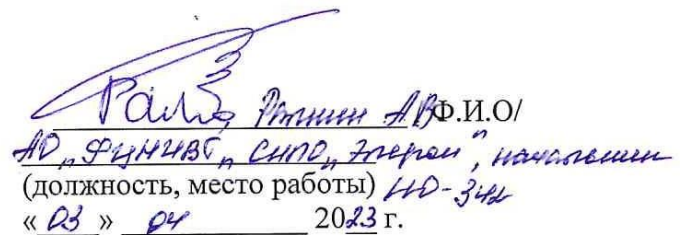 А.В Ф.И.О/
АО „ФЦНИВТ „СНПО „Элерон", начальник
(должность, место работы) НО-342
« 03 » 04 2023 г.